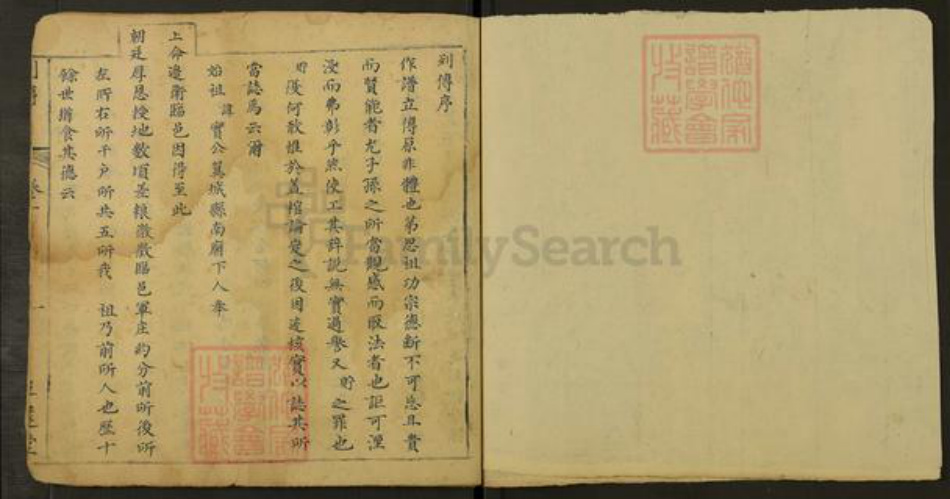 列傳序
作譜立傳原非體也第思祖功宗德斷不可忘且貴
而賢能者尤子孫之所當觀感而取法者也詎可湮
沒而弗彰乎然使工其辭說無實過譽又 貯 之罪也
貯 復何敢惟於蓋棺論定之後因迹核實以誌其所
當誌焉云爾
始祖 諱 實公冀城縣南廟下人奉
上命邊衛臨邑因得至此
朝廷厚恩授地數頃差糧微臨邑軍庄約分前所後所
左所右所千户所共五所我 祖乃前所人也歷十
餘世猶食其德云
FamilySearch